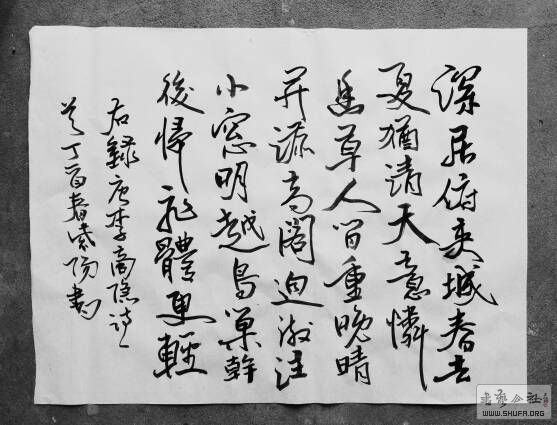 深居俯夾城春去
夏猶清天意憐
幽草人間重晚晴
并添高閣迥微注
小窗明越鳥巢幹
後歸飛體更輕
右錄唐李商隱詩一
首丁酉春紫陽書
書藝公社
WWW.SHUFA.ORG